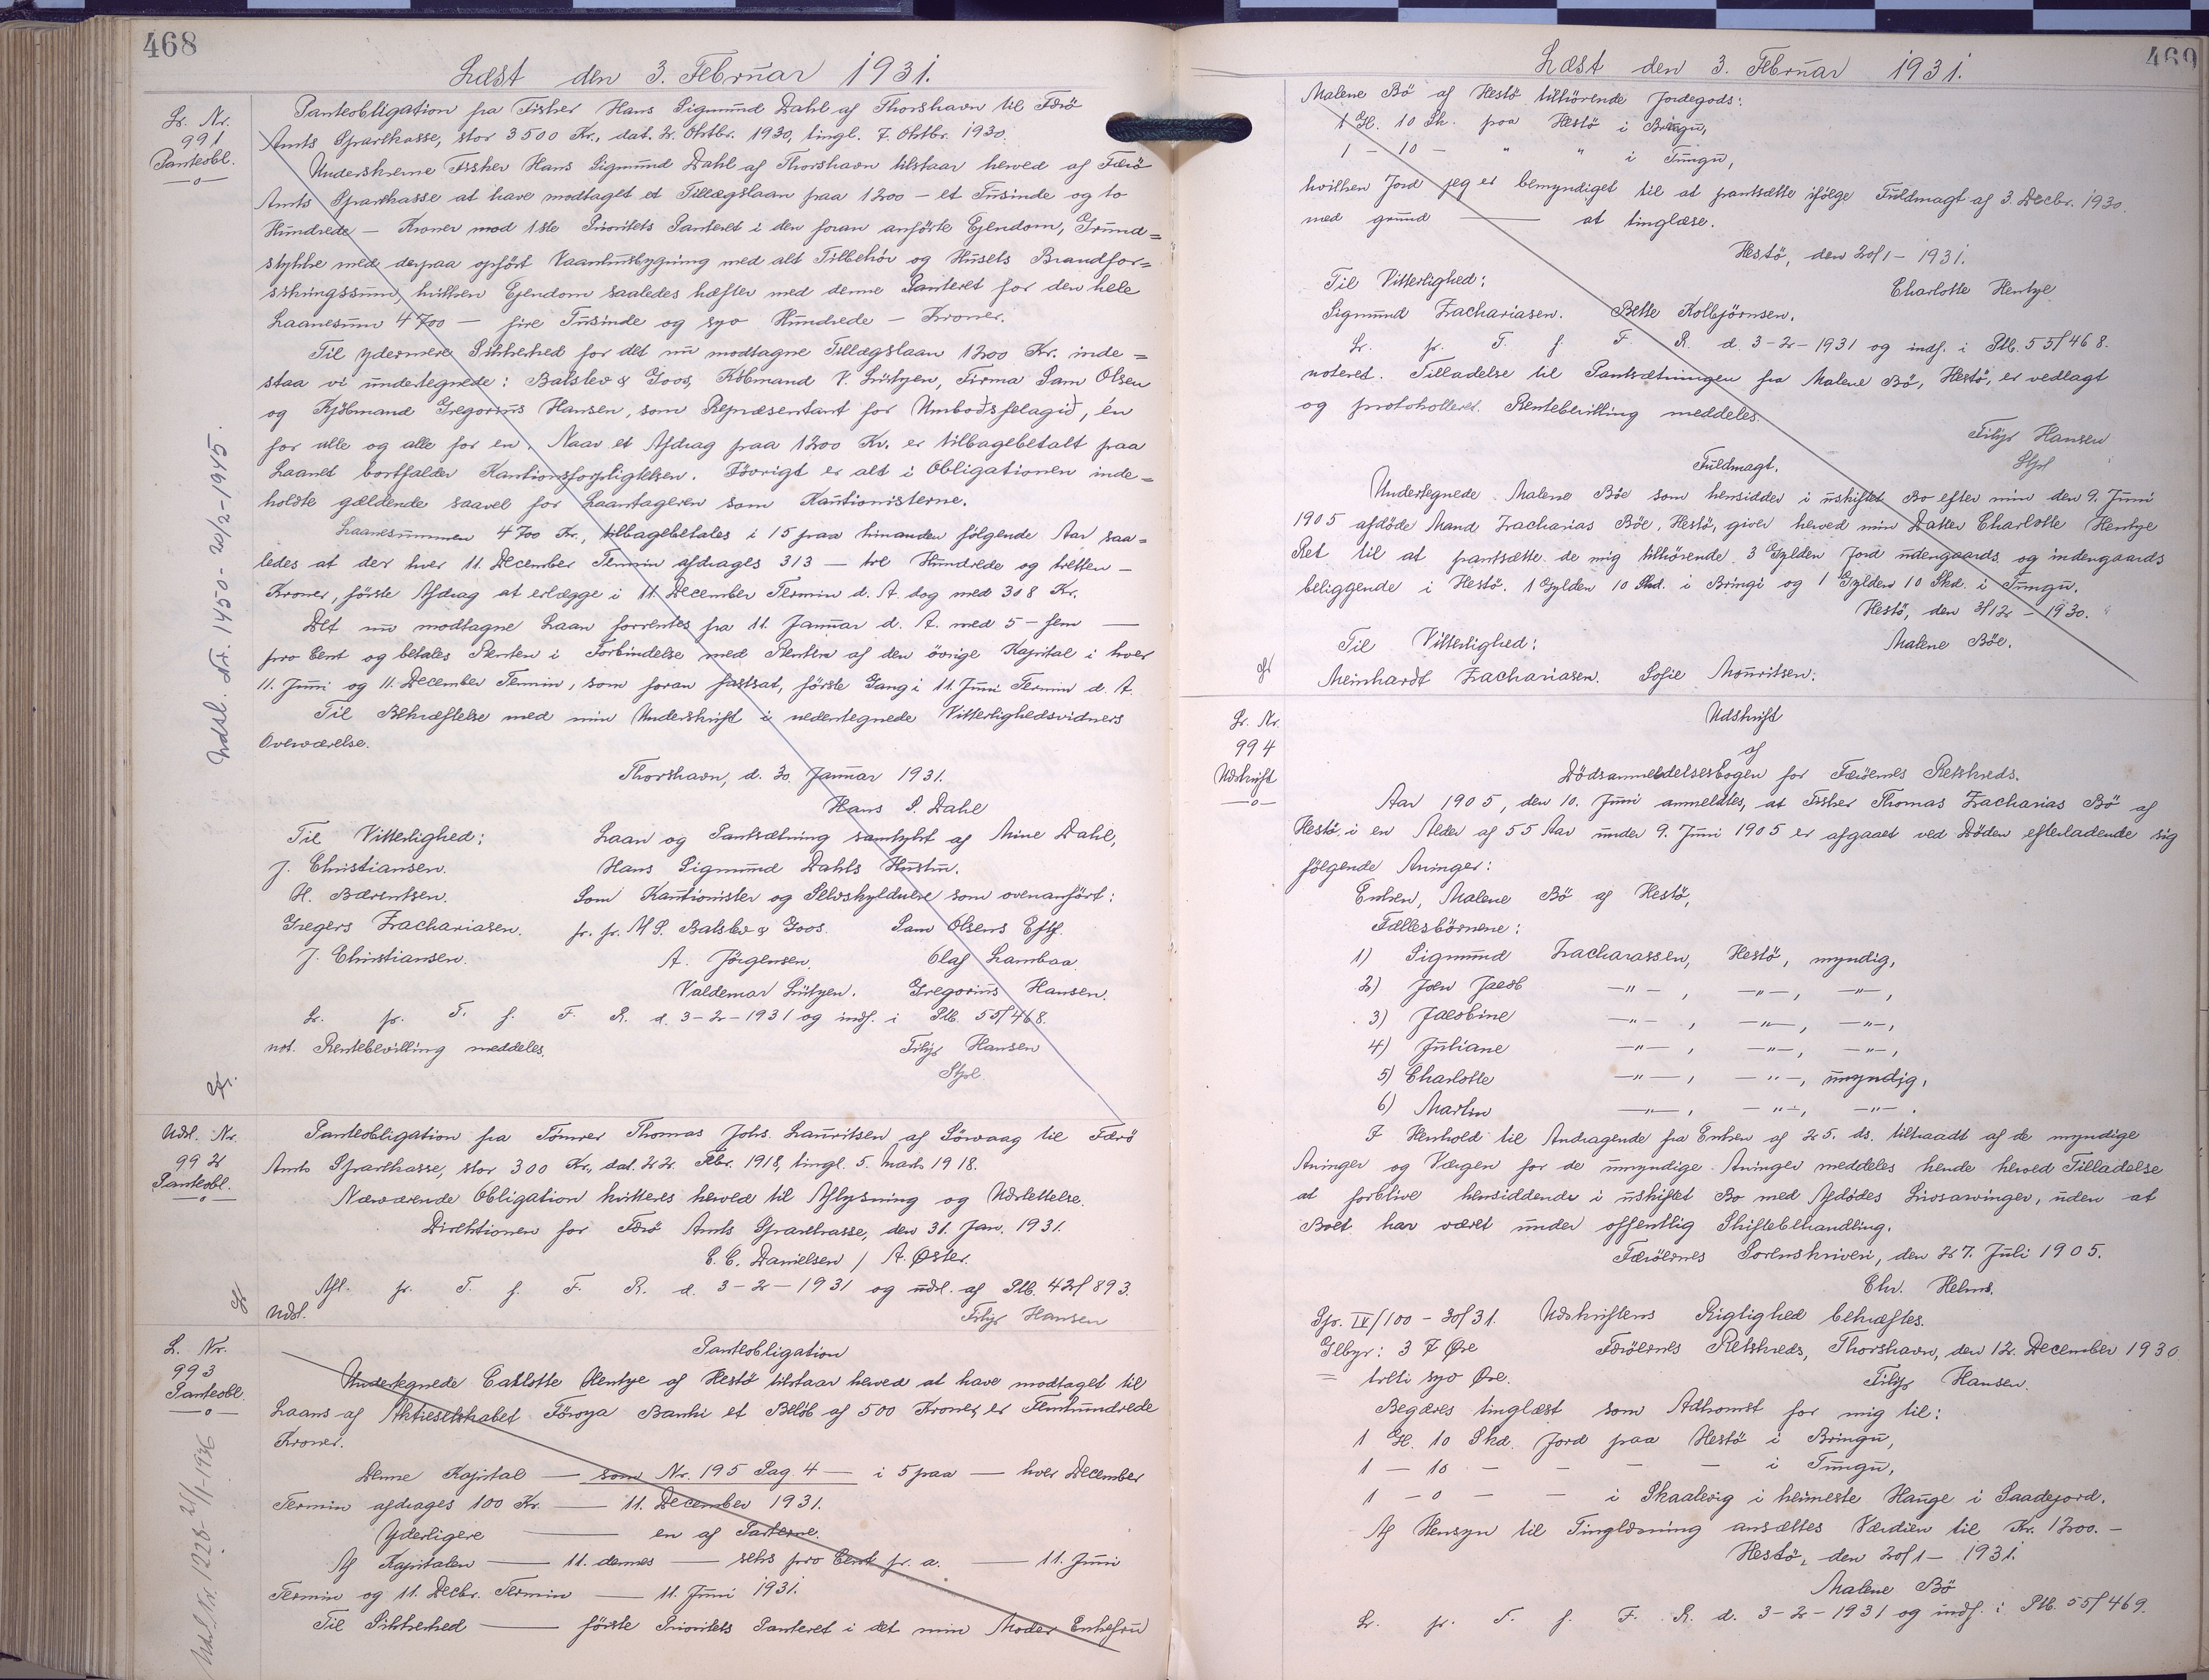 468
Læst den 3. Februar 1931.
Lr. Nr.
991
Panteobl.
Panteobligation fra Fisker Hans Sigmund Dahl af Thorshavn til Færø
Amts Sparekasse, stor 3500 Kr., dat. 2. Oktbr. 1930, tingl. 7. Oktbr. 1930.
Underskrevne Fisker Hans Sigmund Dahl af Thorshavn tilstaar herved af Færø
Amts Sparekasse at have modtaget et Tillægslaan paa 1200 — et Tusinde og to
Hundrede — Kroner mod 1ste Prioritets Panteret i den foran anførte Ejendom, Grund=
stykke med derpaa opført Vaaningsbygning med alt Tilbehör og Husets Brandfor=
sikringssum, hvilken Ejendom saaledes hæfter med denne Panteret for den hele
Laanesum 4700 — fire Tusinde og syv Hundrede — Kroner.
Til ydermere Sikkerhed for det nu modtagne Tillægslaan 1200 Kr. inde=
staa vi undertegnede: Balslev & Goos, Købmand V. Lützen, Firma Sam Olsen
og Kjöbmand Gregorius Hansen, som Repræsentant for Umboðsfelagið, én
for alle og alle for en. Naar et Afdrag paa 1200 Kr. er tilbagebetalt paa
Laanet bortfalder Kautionsforpligtelsen. Iövrigt er alt i Obligationen inde=
holdte gældende saavel for Laantageren som Kautionisterne.
Laanesummen 4700 Kr., tilbagebetales i 15 paa hinanden fölgende Aar saa=
ledes at der hver 11. December Termin afdrages 313 — tre Hundrede og tretten —
Kroner, første Afdrag at erlægge i 11. December Termin d. A. dog med 308 Kr.
Det nu modtagne Laan forrentes fra 11. Januar d. A. med 5 — fem —
pro Cent og betales Renten i Forbindelse med Renten af den övrige Kapital i hver
11. Juni og 11. December Termin, som foran fastsat, förste Gang i 11. Juni Termin d. A.
Til Bekræftelse med min Underskrift i nedentegnede Vitterlighedsvidners
Overværelse.
Thorshavn, d. 30. Januar 1931.
Hans S. Dahl
Til Vitterlighed:
J. Christiansen.
H. Bærentsen.
Gregers Zachariasen.
J. Christiansen.
Laan og Pantsætning samtykt af Mine Dahl,
Hans Sigmund Dahls Hustru.
Som Kautionister og Selvskyldnere som ovenanfört:
pr. pr. M S. Balslev & Goos. Sam Olsens Eftf.
A. Jörgensen. Olaf Lambaa
Valdemar Lützen. Gregorius Hansen.
Lr. pr. T. f. F. R. d. 3-2-1931 og indf. i Ptb. 55/468.
not. Rentebevilling meddeles.
Filip Hansen
Stpl.
Udsl. Nr. 1450 - 20/2-1945.
Udsl. Nr.
992
Panteobl.
Panteobligation fra Tömrer Thomas Johs. Lauritsen af Sörvaag til Færö
Amts Sparekasse, stor 300 Kr., dat. 22. Febr. 1918, tingl. 5. Marts 1918.
Nærværende Obligation kvitteres herved til Aflysning og Udslettelse.
Direktionen for Færö Amts Sparekasse, den 31. Jan. 1931.
C. C. Danielsen / A. Øster.
Afl. pr. T. f. F. R. d. 3-2-1931 og udsl. af Ptb. 42/893.
Udsl.
Filip Hansen
L. Nr.
993
Panteobl.
Udsl. Nr. 1228 - 21/1-1936
Panteobligation
Undertegnede Carlotte Hentze af Hestö tilstaar herved at have modtaget til
Laans af Aktieselskabet Föroya Banki et Belöb af 500 Kroner, er Femhundrede
Kroner.
Denne Kapital — som Nr. 195 Pag. 4 — i 5 paa — hver December
Termin afdrages 100 Kr. — 11. December 1931.
Yderligere — en af Parterne.
Af Kapitalen — 11. dennes — seks pro Cent pr. a. — 11. Juni
Termin og 11. Decbr. Termin — 11. Juni 1931.
Til Sikkerhed — förste Prioritets Panteret i det min Moder Enkefru
469
Læst den 3. Februar 1931.
Malene Bö af Hestö tilhörende Jordegods:
1 Gl. 10 Sk. paa Hestö i Bringu,
1 - 10 - " " i Tungu,
hvilken Jord jeg er bemyndiget til at pantsætte ifölge Fuldmagt af 3. Decbr. 1930.
med grund — at tinglæse.
Hestö, den 20/1 - 1931.
Til Vitterlighed:
Charlotte Hentze
Sigmund Zachariasen. Bette Kolbjörnsen.
Lr. pr. T. f. F. R. d. 3-2-1931 og indf. i Ptb. 55/468.
noteret. Tilladelse til Pantsætningen fra Malene Bö, Hestö, er vedlagt
og protokolleret. Rentebevilling meddeles.
Filip Hansen
Stpl
Fuldmagt.
Undertegnede Malene Böe som hensidder i uskiftet Bo efter min den 9. Juni
1905 afdöde Mand Zacharias Böe, Hestö, giver herved min Datter Charlotte Hentze
Ret til at pantsætte de mig tilhörende 3 Gylden Jord udengaards og indengaards
beliggende i Hestö. 1 Gylden 10 Skd. i Bringi og 1 Gylden 10 Skd. i Tungu.
Hestö, den 3/12 - 1930.
Til Vitterlighed:
Malene Böe.
Meinhardt Zachariasen. Sofie Mouritsen.
Lr. Nr.
994
Udskrift
Udskrift
af
Dödsanmeldelsesbogen for Færöernes Retskreds.
Aar 1905, den 10. Juni anmeldtes, at Fisker Thomas Zacharias Bö af
Hestö i en Alder af 55 Aar under 9. Juni 1905 er afgaaet ved Döden efterladende sig
fölgende Arvinger:
Enken, Malene Bö af Hestö,
Fællesbörnene:
1) Sigmund Zacharassen, Hestö, myndig,
2) Joen Jacob —"—, —"—, —"—,
3) Jacobine —"—, —"—, —"—,
4) Juliane —"—, —"—, —"—,
5) Charlotte —"—, —"—, umyndig,
6) Martin —"—, —"—, —"—.
I Henhold til Andragende fra Enken af 25. ds. tiltraadt af de myndige
Arvinger og Værgen for de umyndige Arvinger meddeles hende herved Tilladelse
at forblive hensiddende i uskiftet Bo med Afdödes Livsarvinger, uden at
Boet har været under offentlig Skiftebehandling.
Færöernes Sorenskriveri, den 27. Juli 1905.
Chr. Helms.
Spr. IV/100 - 30/31. Udskriftens Rigtighed bekræftes.
Glbyr: 37 Øre Færöernes Retskreds, Thorshavn, den 12. December 1930
= treti syv Øre.
Filip Hansen.
Begæres tinglæst som Adkomst for mig til:
1 Gl. 10 Skd. Jord paa Hestö i Bringu,
1 - 10 - - - - i Tungu,
1 - 0 - - i Skaalevig i heimeste Hauge i Saadejord.
Af Hensyn til Tinglæsning ansættes Værdien til Kr. 1200.-
Hestö, den 20/1 - 1931.
Malene Bö
Lr. pr. T. f. F. R. d. 3-2-1931 og indf. i Ptb. 55/469.